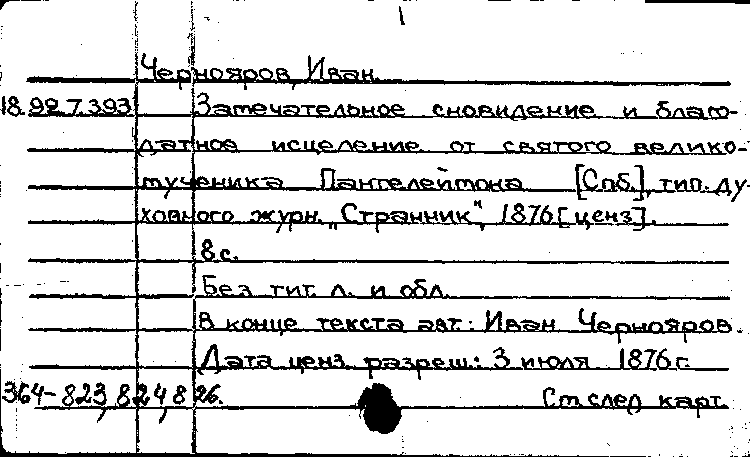 1
Чернояров, Иван.
18.92.7.393 Замечательное сновидение и благо-
датное исцеление от святого велико-
мученика Пантелеймона [Спб.], тип. ду-
ховного журн. „Странник", 1876 [ценз].
8 с.
Без тит. л. и обл.
В конце текста авт.: Иван Чернояров.
Дата ценз. разреш.: 3 июля 1876 г.
364-823,824,826. См. след карт.